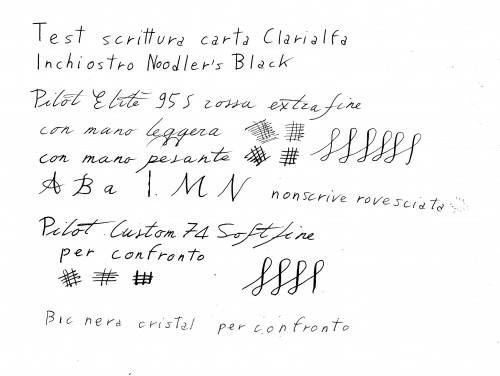 Test scrittura carta Clarialfa
Inchiostro Noodler's Black
Pilot Elite 95S rossa extrafine
con mano leggera
con mano pesante
A B a I. M N nonscrive rovesciata
Pilot Custom 74 Softfine
per confronto
Bic nera cristal per confronto